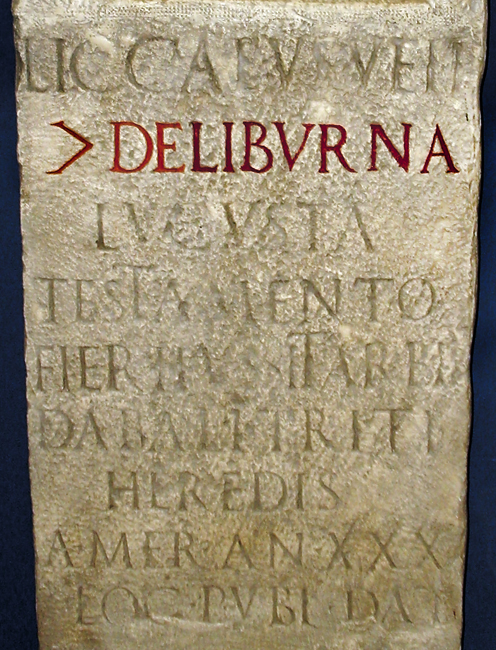 LICCAEVS
> DE LIBVRNA
AVGVSTA
TESTAMENTO
FIERI IVSSIT ARBI
DABALI TRITI F
HEREDIS
A·MER·AN XXX
LOC·PVBL·DAT